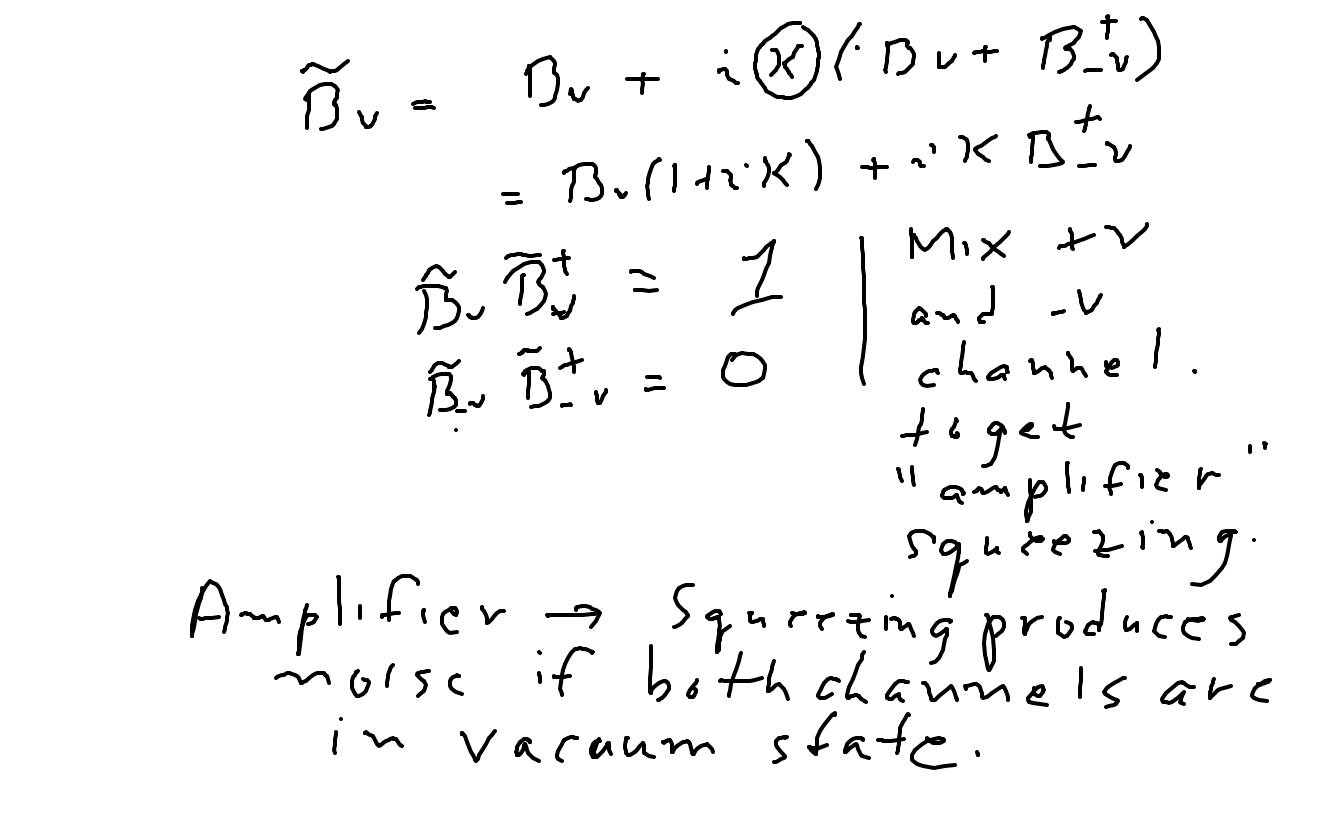 B̃ᵥ = Bᵥ + iκ(Bᵥ + B₋ᵥ†)
= Bᵥ(1+iκ) + iκ B₋ᵥ†
B̃ᵥ B̃ᵥ† = 1
B̃₋ᵥ B̃₋ᵥ† = 0
Mix +ν
and -ν
channel.
to get
"amplifier"
squeezing.
Amplifier → Squeezing produces
noise if both channels are
in vacuum state.